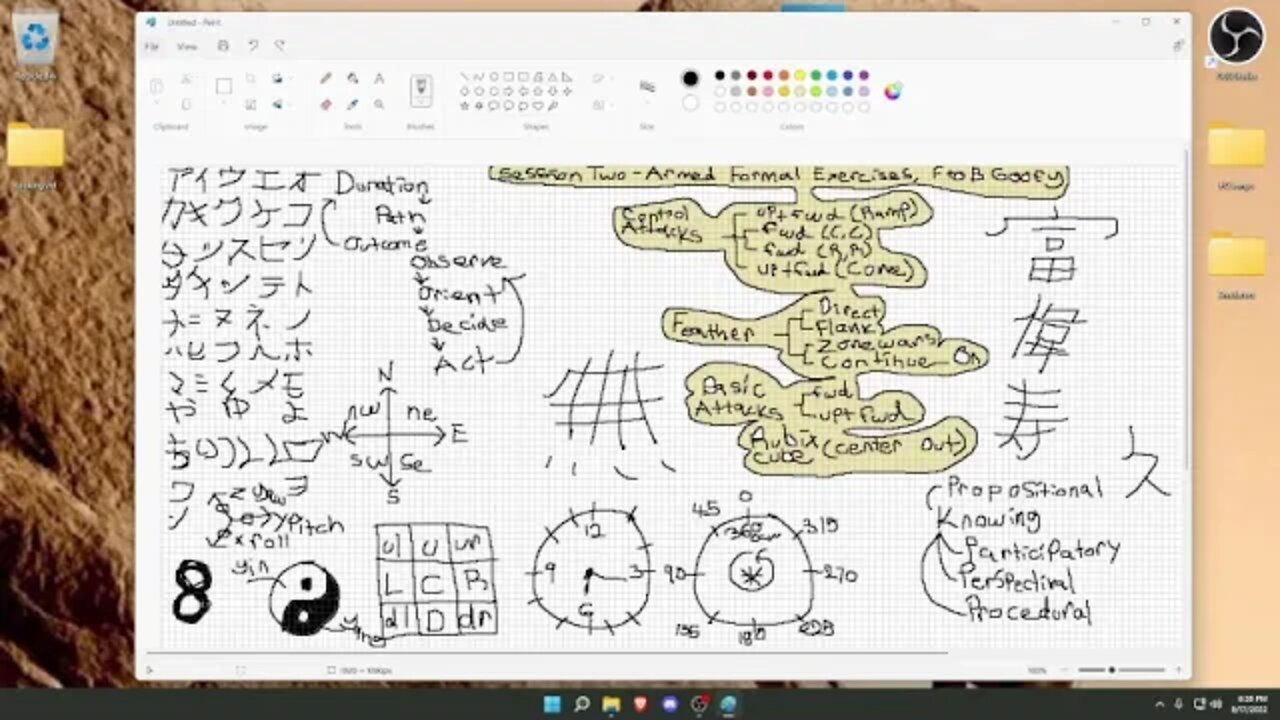 Untitled - Paint
File View
Clipboard Image Tools Brushes Shapes Size Colors
(Session Two - Armed Formal Exercises, F to B Goofy)
アイウエオ
カキクケコ
スセソ
テト
ナニヌネノ
ハヒフヘホ
マミムメモ
やゆよ
Duration
Path
Outcome
Observe
Orient
Decide
Act
Control Attacks
up+fwd (Ramp)
fwd (C, C)
fwd (R, R)
up+fwd (Cone)
Feather
Direct
Flank
Zone wars
Continue On
Basic Attacks
fwd
up+fwd
Rubix Cube (center out)
N
nw ne
W E
sw se
S
z yaw
y Pitch
x roll
8
yin
yang
ul U ur
L C R
dl D dr
12
9 3
6
0
45 315
360
90 270
135 180 225
富
輝
寿
久
Propositional
Knowing
Participatory
Perspectival
Procedural
100%
8/17/2022